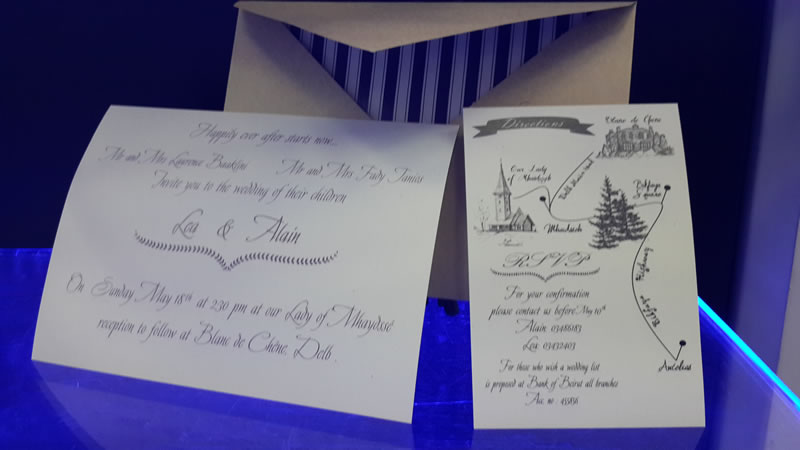 Happily ever after starts now...
Mr and Mrs Laurence Baaklini Mr and Mrs Fady Tanios
Invite you to the wedding of their children
Lea & Alain
On Sunday May 18th at 2:30 pm at our Lady of Mhaydsse
reception to follow at Blanc de Chêne, Delb
Directions
Blanc de Chêne
Our Lady
of Mhaydseh
Delb Main Road
Bikfaya
Square
Mhaydseh
Bikfaya Highway
Antelias
RSVP
For your confirmation
please contact us before May 10th
Alain: 03466183
Lea: 03432403
For those who wish a wedding list
is proposed at Bank of Beirut all branches
Acc. no : 455836